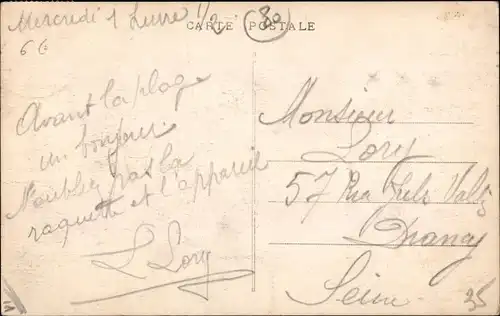 Mercredi 1 heure 1/2
30
CARTE POSTALE
Avant la plage
un bonjour.
N'oublie pas la
raquette et l'appareil
L Lory
Monsieur
Lory
57 Rue Jules Vallès
Drancy
Seine
35